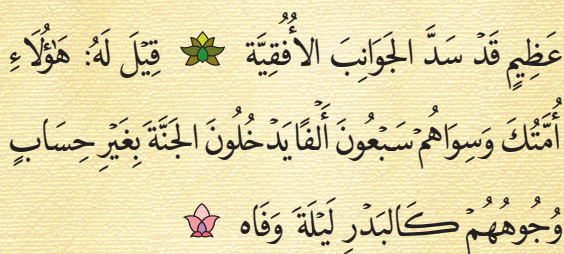 عَظِيمٍ قَدْ سَدَّ الجَوَانِبَ الأُفُقِيَّة قِيْلَ لَهُ: هَؤُلَاءِ
أُمَّتُكَ وَسِوَاهُمْ سَبْعُونَ أَلْفًا يَدْخُلُونَ الجَنَّةَ بِغَيْرِ حِسَابٍ
وُجُوهُهُمْ كَالبَدْرِ لَيْلَةَ وَفَاه